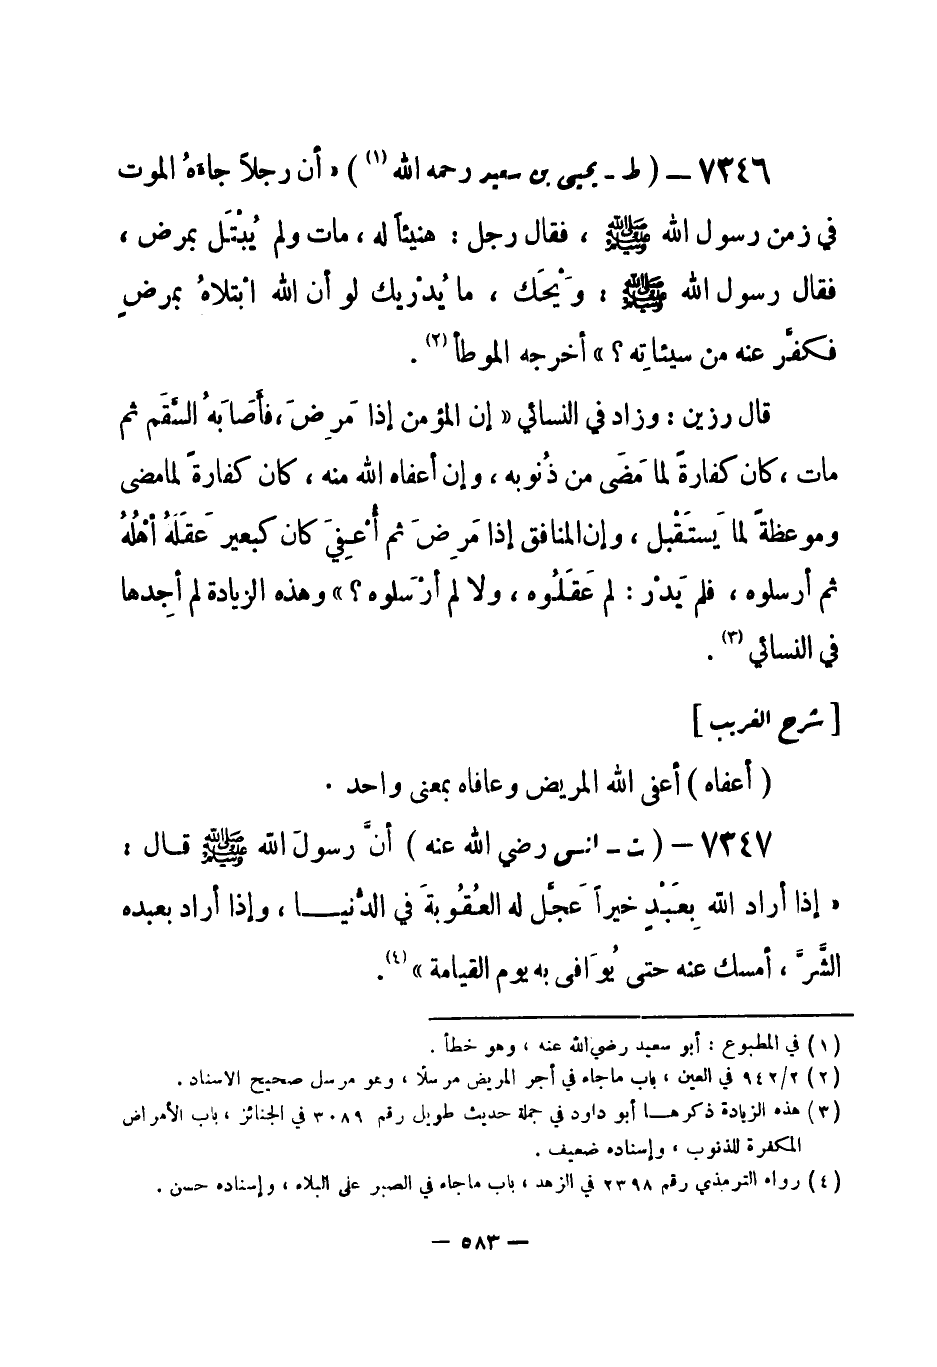 ٧٣٤٦ – ( ط - يحيى بن سعيد رحمه الله (١) ) « أن رجلاً جاءهُ الموت
في زمن رسول الله ﷺ ، فقال رجل : هنيئاً له ، مات ولم يُبْتَل بمرض ،
فقال رسول الله ﷺ : وَيْحَك ، ما يُدْريك لو أن الله ابْتلاهُ بمرضٍ
فكفَّر عنه من سيئاتِه ؟ » أخرجه الموطأ (٢) .
قال رزين : وزاد في النسائي « إن المؤمن إذا مَرِضَ ،فأَصَابَهُ السَّقَم ثم
مات ،كان كفارةً لما مَضَى من ذُنوبه ، وإن أعفاه الله منه ، كان كفارةً لمامضى
وموعظةً لما يَستَقْبل ، وإن المنافق إذا مَرِضَ ثم أُعْفِيَ كان كبعير عَقَلَهُ أهْلُهُ
ثم أرسلوه ، فلم يَدْر : لم عَقَلُوه ، ولا لم أرْسَلوه ؟ » وهذه الزيادة لم أجِدها
في النسائي (٣) .
[ شرح الغريب ]
( أعفاه ) أعفى الله المريض وعافاه بمعنى واحد .
٧٣٤٧ – ( ت - أنس رضي الله عنه ) أنَّ رسولَ الله ﷺ قال :
« إذا أراد الله بِعَبْدٍ خيراً عَجَّل له العُقُوبةَ في الدُّنيا ، وإذا أراد بعبده
الشَّرَّ ، أمسك عنه حتى يُوَافى به يوم القيامة » (٤).
(١) في المطبوع : أبو سعيد رضي الله عنه ، وهو خطأ .
(٢) ٩٤٢/٢ في العين ، باب ماجاء في أجر المريض مرسلًا ، وهو مرسل صحيح الاسناد .
(٣) هذه الزيادة ذكرهـا أبو داود في جملة حديث طويل رقم ٣٠٨٩ في الجنائز ، باب الأمراض
المكفرة للذنوب ، وإسناده ضعيف .
(٤) رواه الترمذي رقم ٢٣٩٨ في الزهد ، باب ماجاء في الصبر على البلاء ، وإسناده حسن .
— ٥٨٣ —